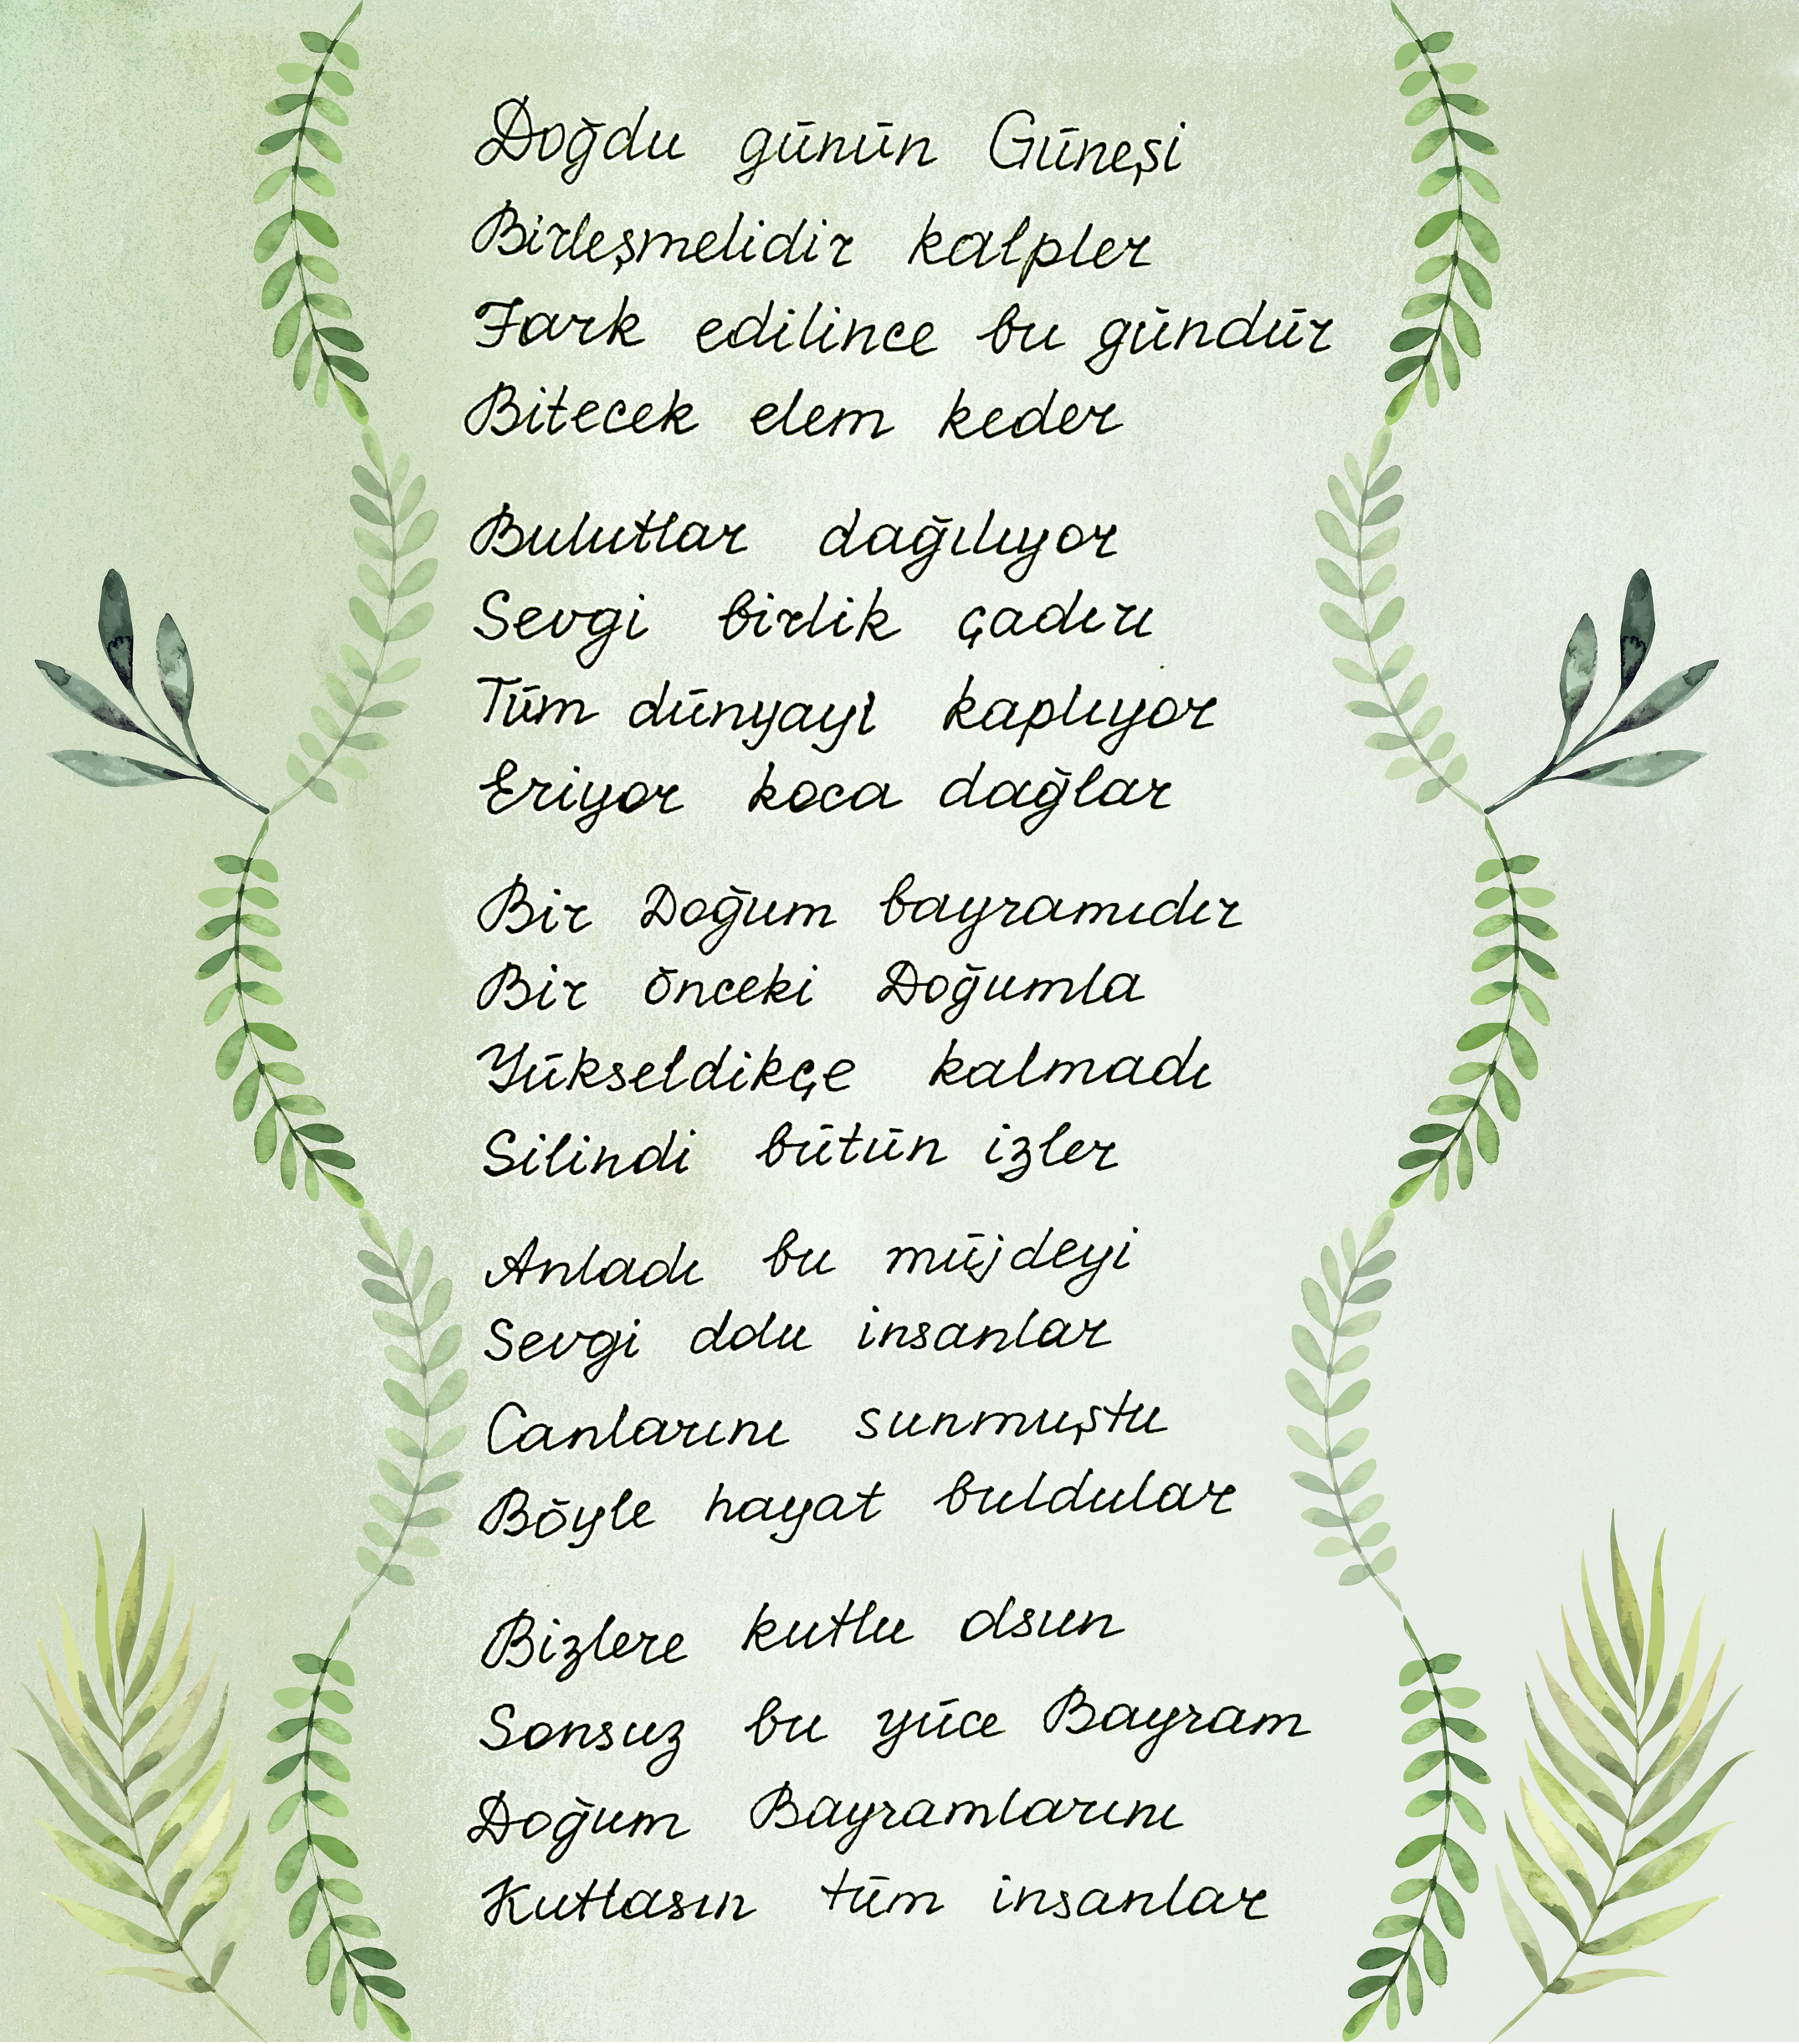 Doğdu günün Güneşi
Birleşmelidir kalpler
Fark edilince bu gündür
Bitecek elem keder
Bulutlar dağılıyor
Sevgi birlik çadırı
Tüm dünyayı kaplıyor
Eriyor koca dağlar
Bir Doğum bayramıdır
Bir önceki Doğumla
Yükseldikçe kalmadı
Silindi bütün izler
Anladı bu müjdeyi
Sevgi dolu insanlar
Canlarını sunmuştu
Böyle hayat buldular
Bizlere kutlu olsun
Sonsuz bu yüce Bayram
Doğum Bayramlarını
Kutlasın tüm insanlar